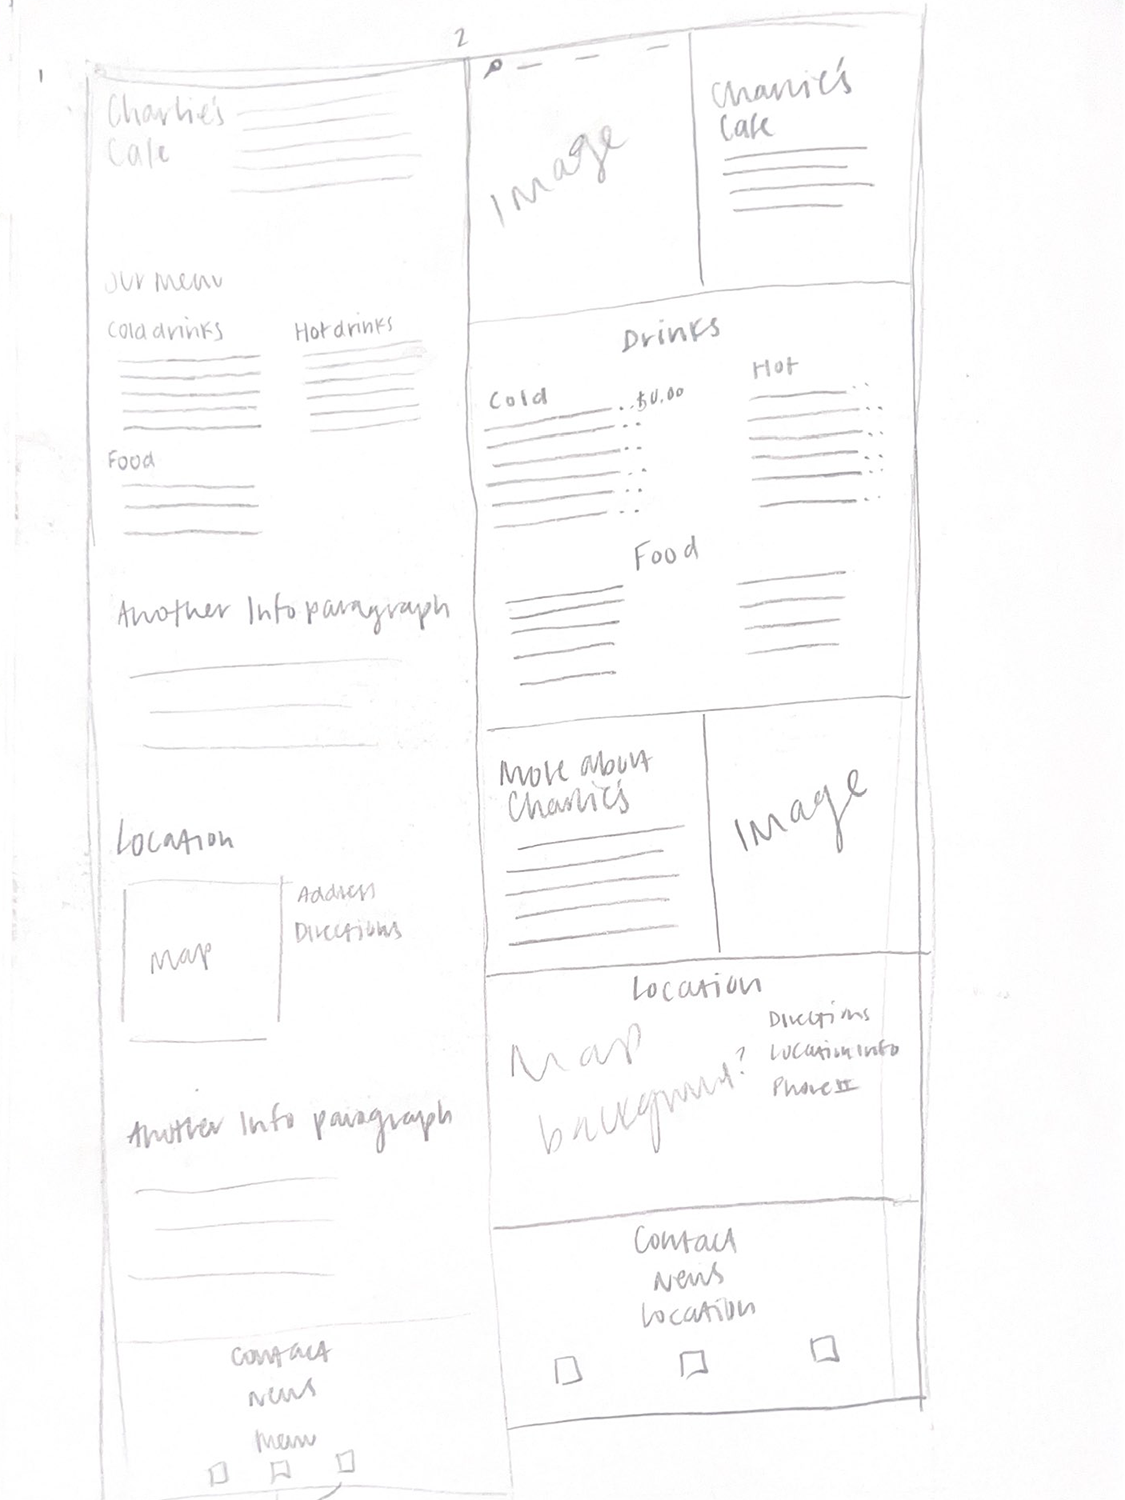 1
Charlie's
Cafe
Our Menu
Cold drinks
Hot drinks
Food
Another Info paragraph
Location
Map
Address
Directions
Another Info paragraph
Contact
News
Menu
2
Image
Charlie's
Cafe
Drinks
Cold
$0.00
Hot
Food
More about
Charlie's
Image
Location
Map
background?
Directions
Location Info
Phone #
Contact
News
Location